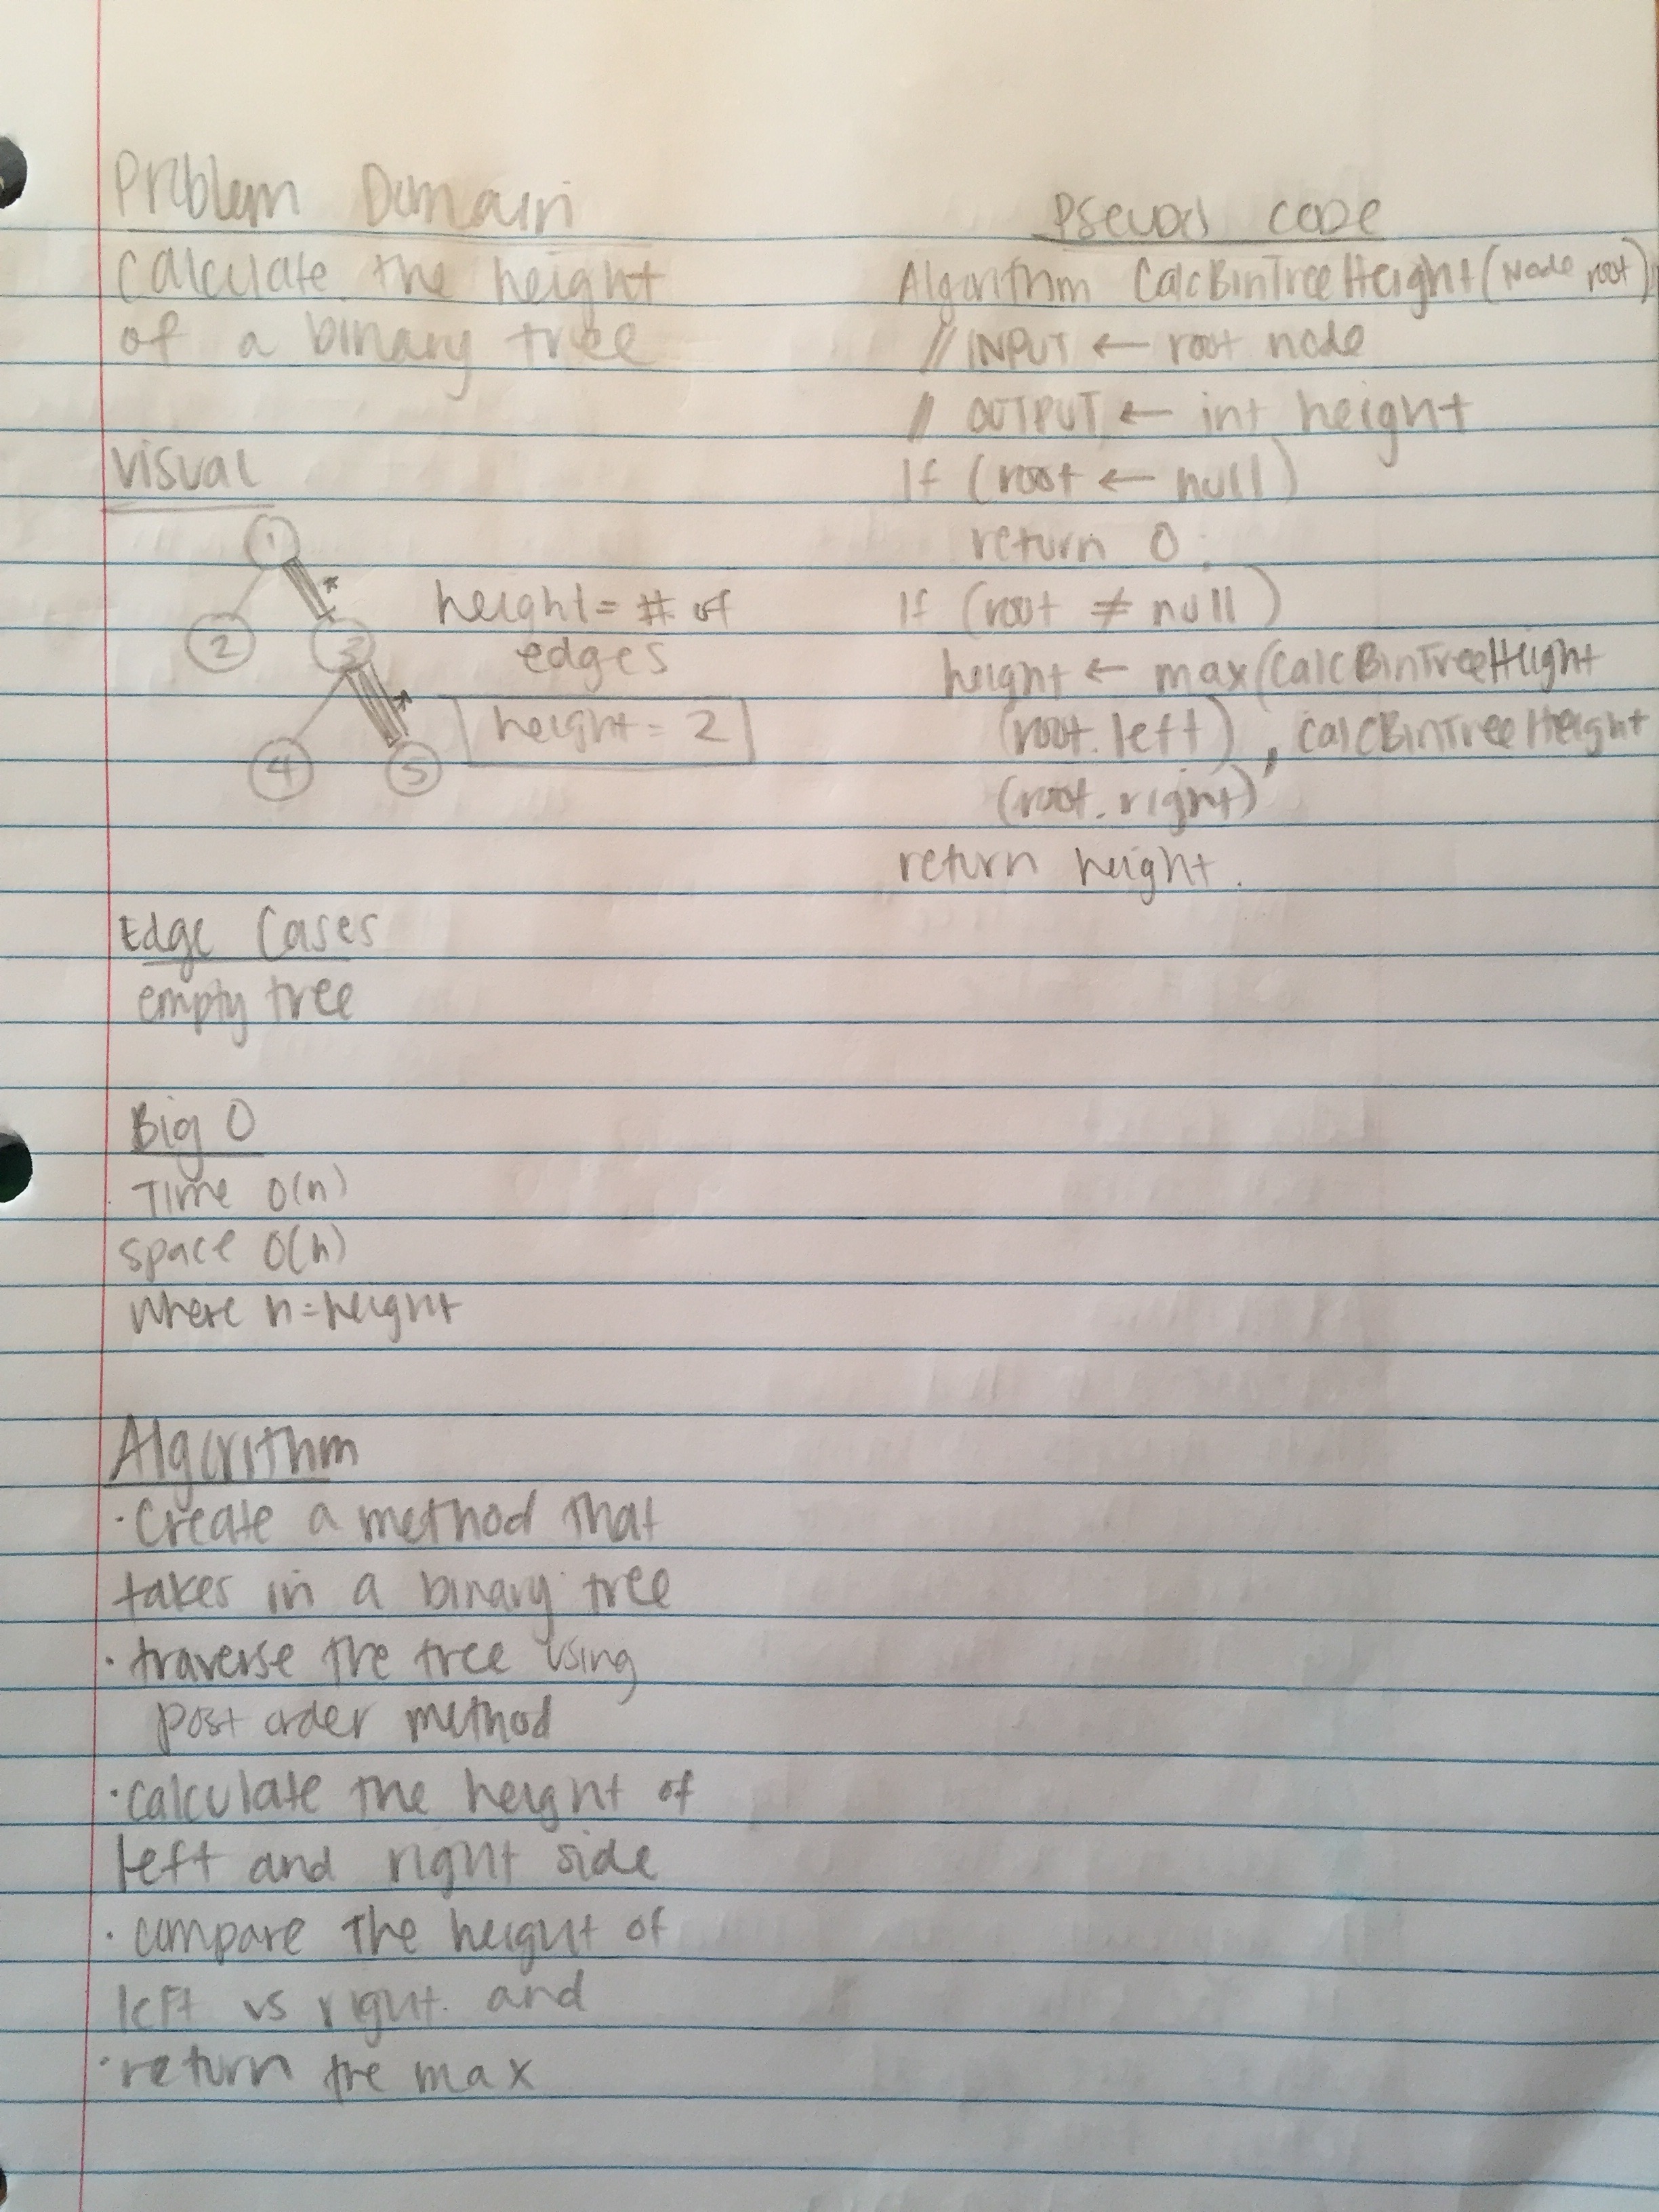 Problem Domain
Calculate the height
of a binary tree
Visual
1
2
3
4
5
height = # of
edges
height = 2
Edge Cases
empty tree
Big O
Time O(n)
space O(h)
Where h = height
Algorithm
· Create a method that
takes in a binary tree
· traverse the tree using
post order method
· calculate the height of
left and right side
· compare the height of
left vs right and
· return the max
Pseudo code
Algorithm CalcBinTreeHeight(Node root)
// INPUT ← root node
// OUTPUT ← int height
If (root ← null)
return 0
If (root ≠ null)
height ← max(CalcBinTreeHeight
(root.left), CalcBinTreeHeight
(root.right)
return height.